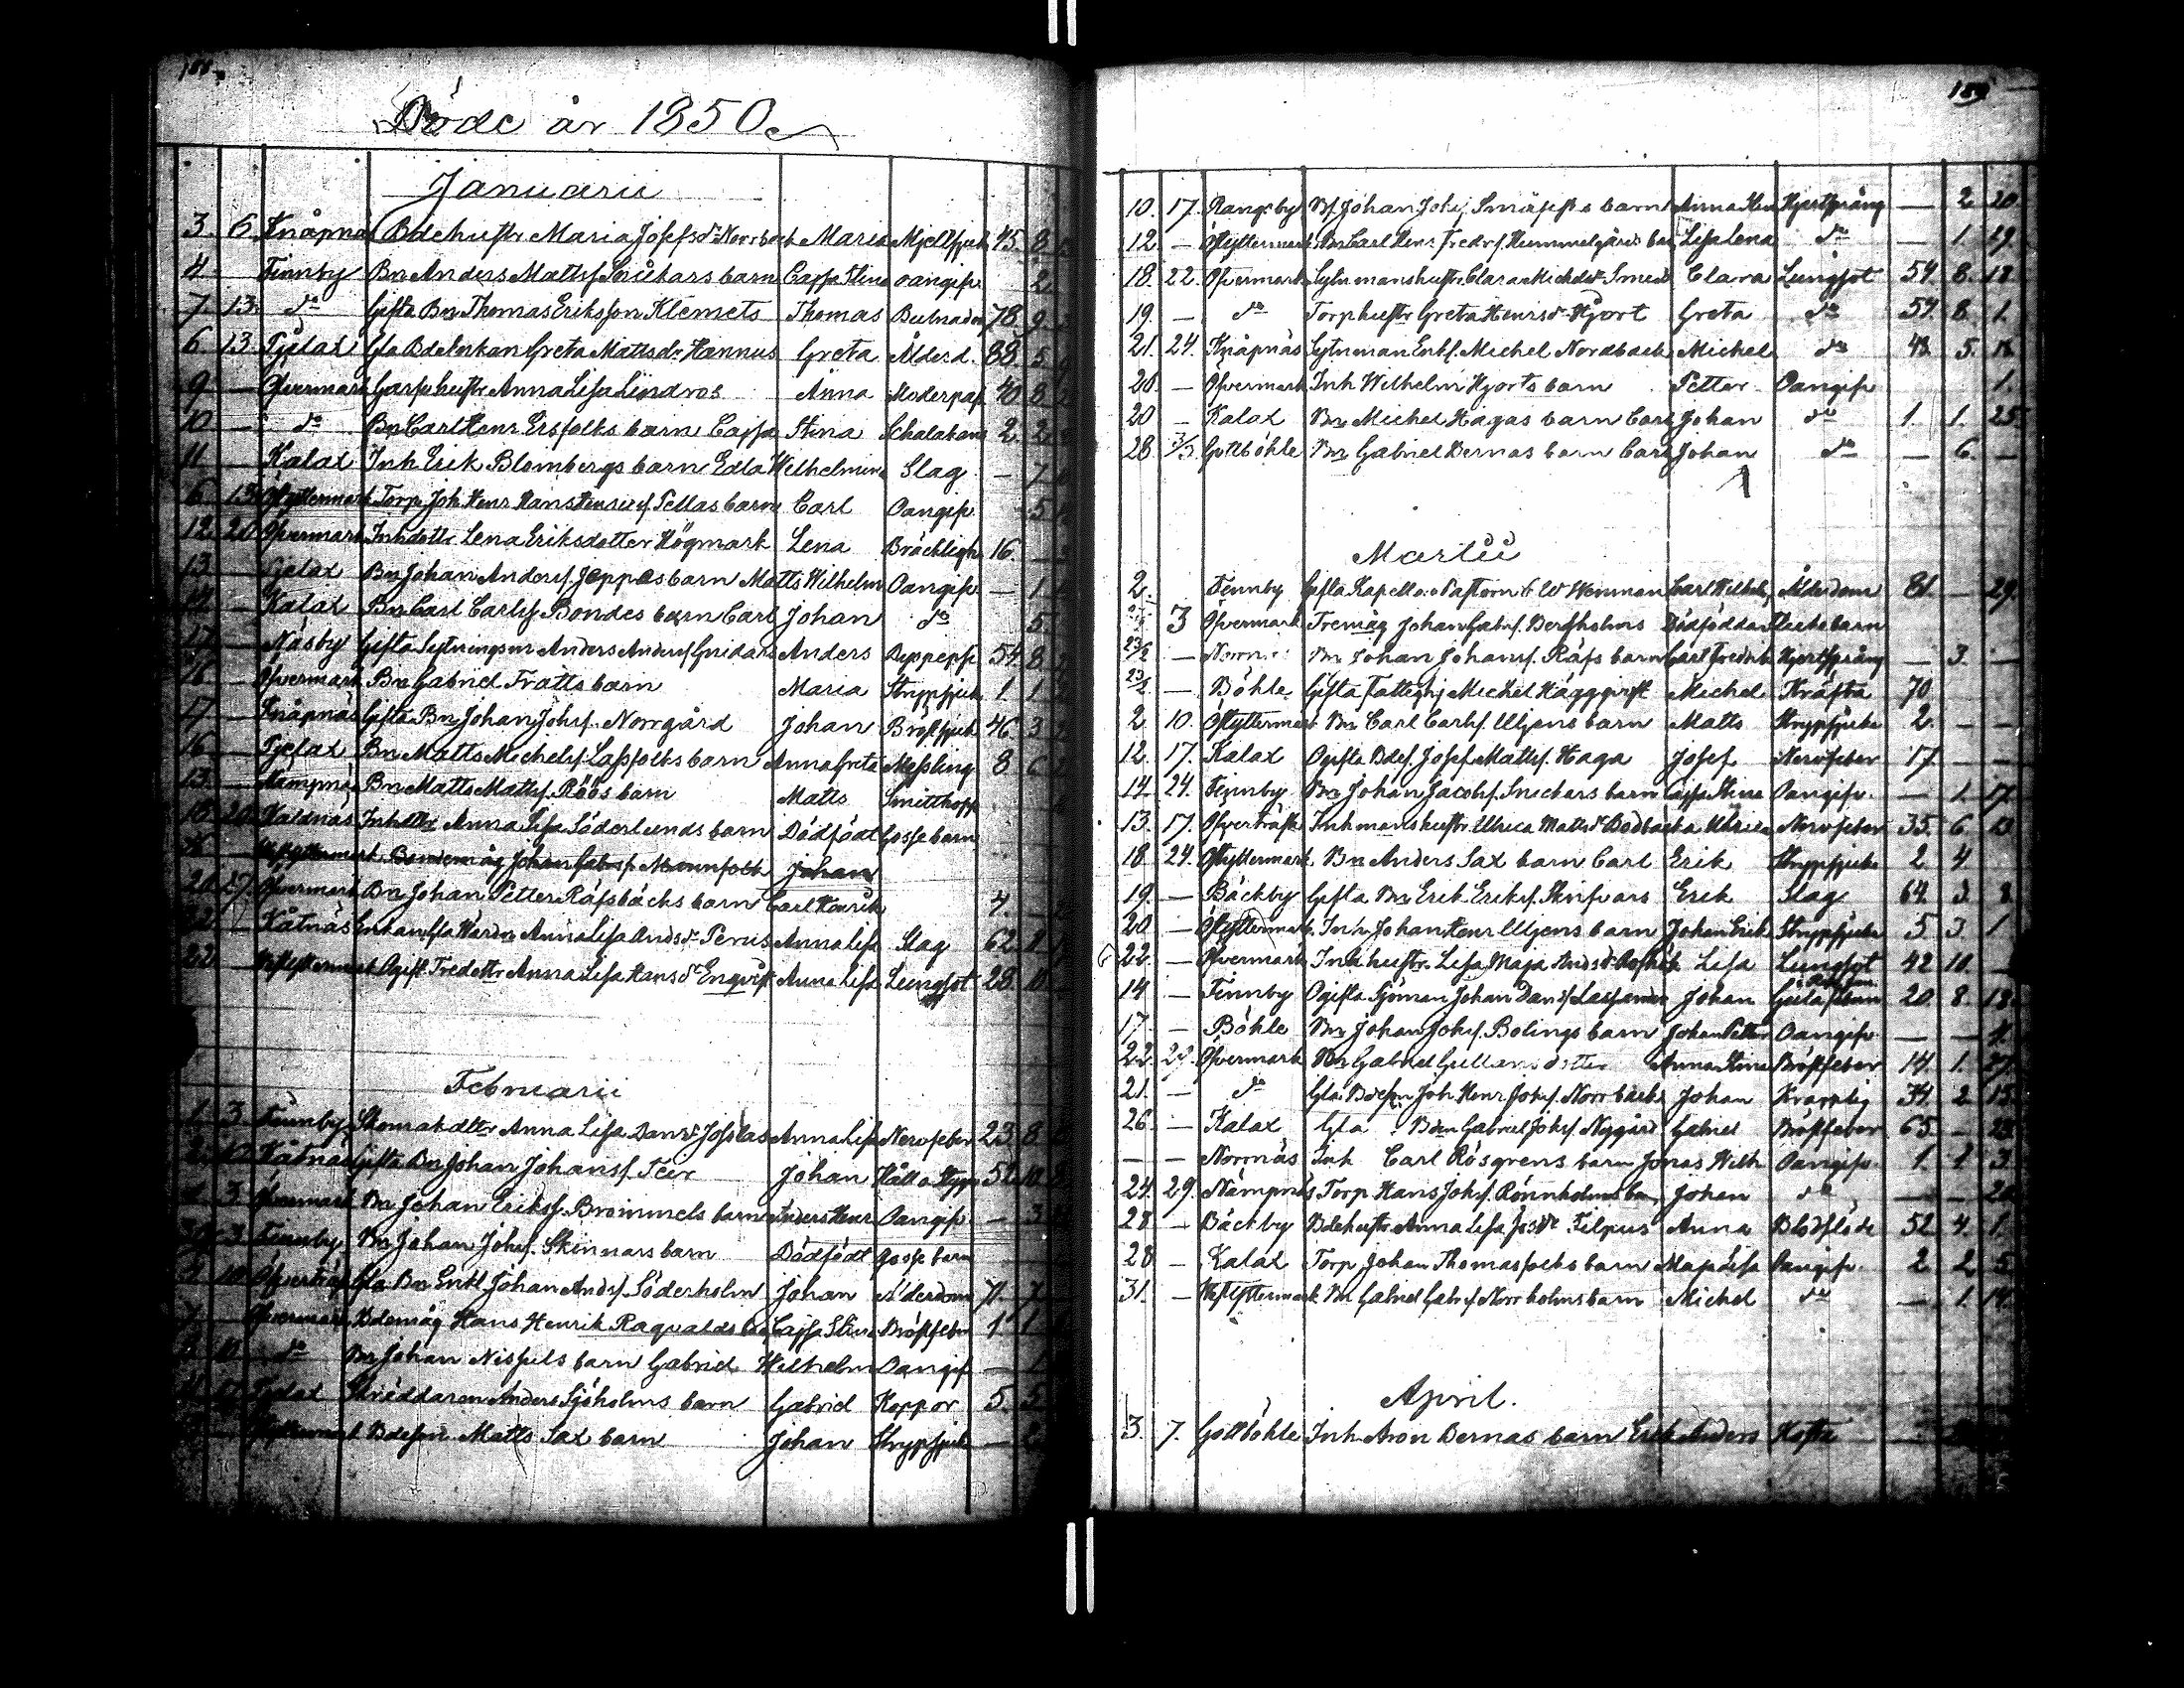 188.
Döde år 1850
Januarii
3. 6. Knåpnäs Bdehustr Maria Josefsdr Norrback Maria Mjeltsjuk 45. 8.
4 Finnby Bn Anders Mattss Snickars barn Cajsa Stina oangifv. 2.
7. 13. do Gifta Bn Thomas Eriksson Klemets Thomas 78. 9.
6. 13. Tjelax Gla Bdeenkan Greta Mattsdr Hannus Greta Ålderd. 88. 5.
9 — Öfvermark hustr Anna Lisa Lindros Anna Moderpas. 40 8
10 — do Bn Carl Henr Ersfolks barn Cajsa Stina 2. 2.
11 — Kalax Inh Erik Blombergs barn Edla Wilhelmina Slag — 7
6 13 Öfyttermark Torp. Joh Henr Hans Henricss. Pellas barn Carl Oangifv 5
12. 20 Öfvermark Inhdottr Lena Eriksdotter Högmark Lena Bräcklighet 16. —
13 — Tjelax Bn Johan Anderss. Jeppas barn Matts Wilhelm Oangifv. — 1.
14 — Kalax Bn Carl Carlss Bondes barn Carl Johan do 5.
17 — Näsby Gifta Sytningsm Anders Anderss Gnidars Anders 54. 8.
16 — Öfvermark Bn Gabriel Fratts barn Maria Strypsjuka 1. 1.
17 — Knåpnäs Gifta Bn Johan Johss. Norrgård Johan Bröstsjuk. 46. 3
16 — Tjelax Bn Matts Michelss. Lassfolks barn Anna Greta Messling 8 6
13. — Nämpnäs Bn Matts Mattss. Röös barn Matts Smittkopp.
18 20 Kaldnäs Inhdttr Anna Lisa Söderlunds barn Dödfödt Gosse barn
Bondemåg Johan Gabrss. Mannfolk Johan
20. 27. Öfvermark Bn Johan Petter Räfsbäcks barn Carl Henrik 4. —
22. Kåtnäs Enkan Gla Anna Lisa Andsdr Perus Anna Lisa Slag 62. 2
22 — Westyttermark Ogift. Tredottr Anna Lisa Hansdr Enqvist Anna Lisa Lungsot 28. 10
Februarii
1. 3. Finnby dttr Anna Lisa Dansdr Josslas Anna Lisa Nervfeber 23. 8
2. 10 Kåtnäs Gifta Bn Johan Johanss. Teir Johan Håll o Stygn 52. 10.
3. Öfvermark Bn Johan Erikss. Brommels barn Anders Henr Oangifv — 3
3. Finnby Bn Johan Johss. Skinnars barn Dödfödt gosse barn
10 Öfverträsk Gla Bn Enkl Johan Andss. Söderholm Johan Ålderdom 71. 7.
7. — Öfvermark Bdemåg Hans Henrik Ragvalds barn Cajsa Stina Bröstfeber 1 1
10 do Bn Johan Nissuls barn Gabriel Wilhelm Oangif —
Tjelax Skräddaren Anders Sjöholms barn Gabriel Koppor 5. 5.
Bdeson Matts Sax barn Johan Strypsjuk —
189
10. 17. Rangsby Bn Johan Johss. barn Anna Stina Hjertsprång — 2. 20.
12. — Östyttermark Bn Carl Henr Fredrss. Hummelgårds barn Lisa Lena do — 1. 29.
18. 22. Öfvermark Sytnmanshustr Clara Michelsdr Smeds Clara Lungsot 54. 8. 18.
19. — do Torphustr Greta Henrsdr Hjort Greta do 54. 8. 1.
21. 24. Knåpnäs Sytnman Enkl. Michel Nordback Michel do 48. 5.
20. — Öfvermark Inh Wilhelm Hjorts barn Petter Oangifv 1.
20 — Kalax Bn Michel Hagas barn Carl Johan do 1. 1. 25.
28. 3/3 Gottböhle Bn Gabriel Bernas barn Carl Johan do — 6. —
Martii
2. Finnby Gifta Kapellanen Pastorn C W Wenman Carl Wilhelm Ålderdom 81. — 29.
3 Öfvermark Tremåg Johan Gabrs. Bergholms Dödföddar Flicke barn
23/2 — Bn Johan Johanss. Räfs barn Carl Fredrik Hjertsprång — 3. —
23/2. — Böhle Gifta Fattighj Michel Häggqvist Michel Kräfta 70
2. 10. Östyttermark Bn Carl Carlss. Uljens barn Matts Strypsjuka 2. — —
12. 17. Kalax Ogifta Bdes. Josef Mattss. Haga Josef Nervfeber 17. — —
14. 24. Finnby Bn Johan Jacobs. Snickars barn Cajsa Stina Oangifv. — 1. 17.
13. 17. Öfverträsk Inhmanshustr Ulrica Mattsdr Bodbacka Ulrica Nervfeber 35. 6. 13
18. 24. Östyttermark Bn Anders Sax barn Carl Erik Strypsjuka 2 4
19. — Bäckby Gifta Bn Erik Erikss. Skinfvars Erik Slag 64. 3. 8.
20 — Östyttermark Inh Johan Henr Uljens barn Johan Erik Strypsjuka 5. 3. 1
22. — Öfvermark Inhhustr. Lisa Maja Andsdr Lisa Lungsot 42. 10. —
14 — Finnby Ogifta Sjöman Johan Danss Johan Gula febern 20. 8. 13.
17. — Böhle Bn Johan Johss. Bolings barn Johan Petter Oangifv. — — 4.
22. Öfvermark Bn Gabriel dotter Anna Stina Bröstfeber 14. 1. 27.
21. — do Gla. Bdeson Joh Henr Johss. Norrbacks Johan 34. 2. 13.
26. — Kalax Gla Bden Gabriel Johss. Nygård Gabriel Bröstfeber 65. — 23.
— — Norrnäs Inh Carl Rösgrens barn Jonas Wilh Oangifv. 1. 1. 3.
24. 29. Nämpnäs Torp Hans Johss. Rönnholms barn Johan do — 20.
28 — Bäckby Bdehustr Anna Lisa Josdr Filpus Anna Blodflöde 52 4. 1.
28 — Kalax Torp. Johan Thomasfolks barn Maja Lisa Oangifv. 2 2. 5.
31. — Westyttermark Bn Gabriel Gabrss Norrholms barn Michel do — 1. 14.
April.
3. 7. Gottböhle Inh. Aron Bernas barn Erik Anders Hosta